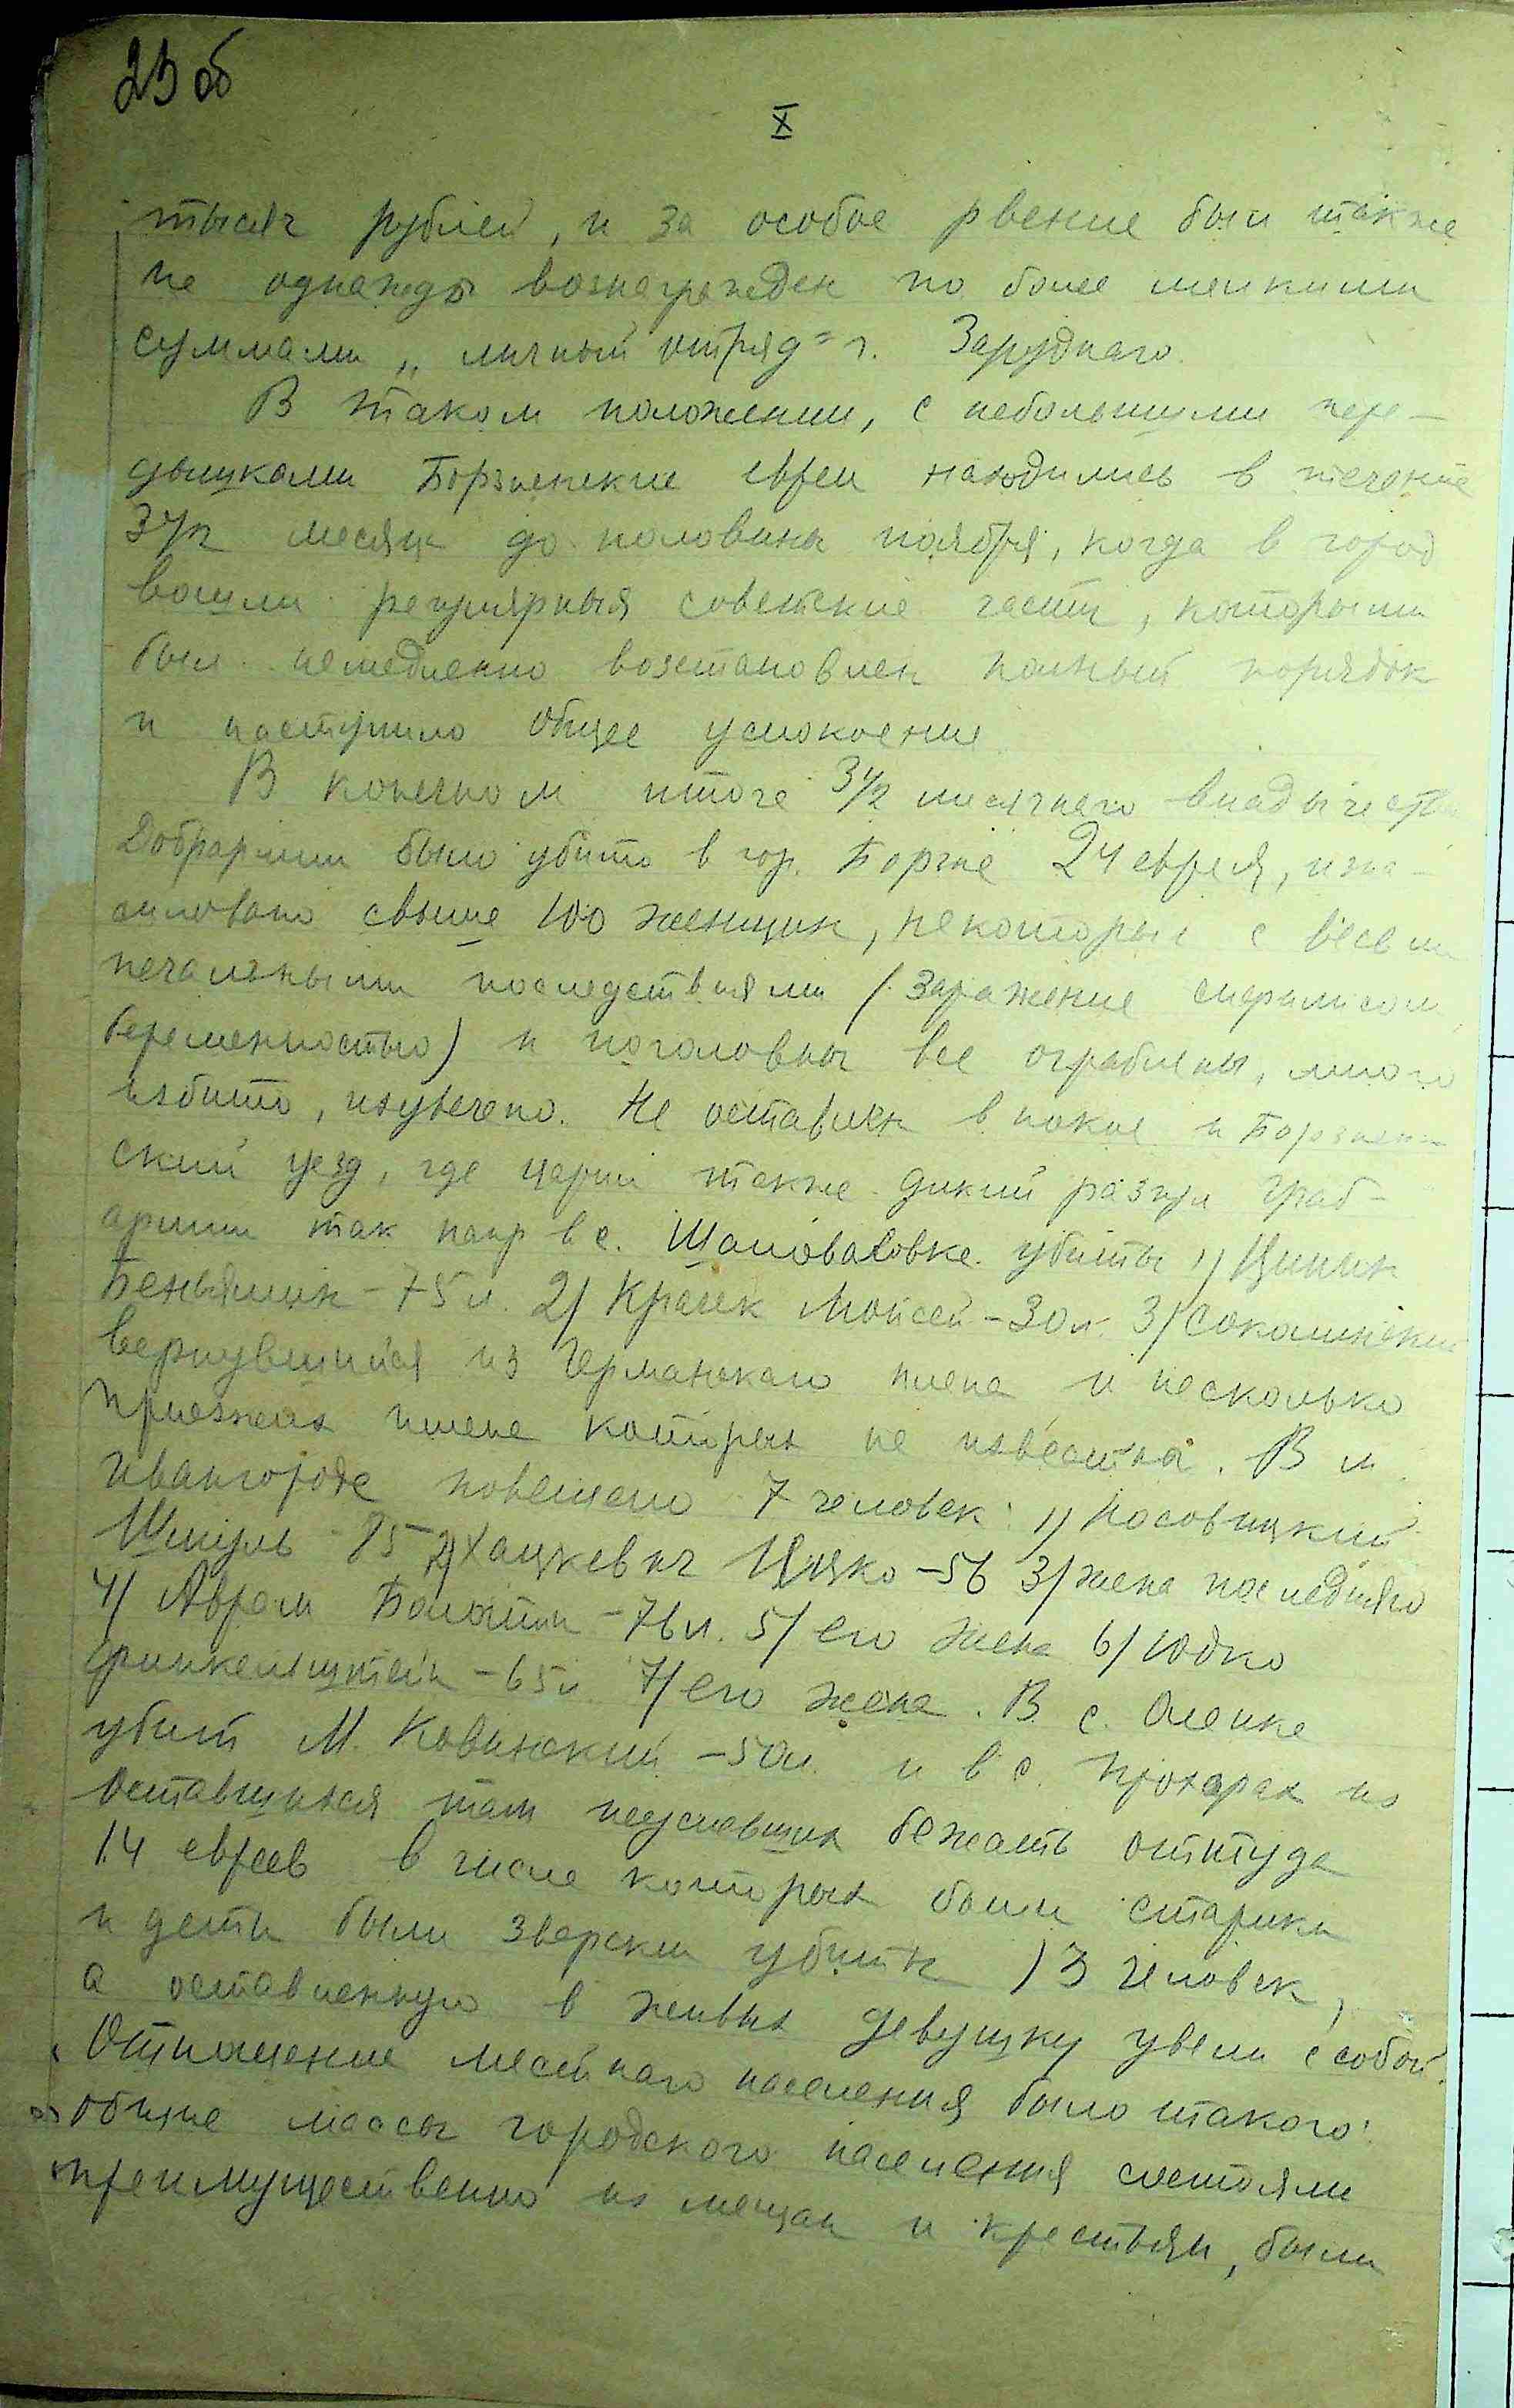 23 об
X
тысяч рублей, и за особое рвение был также
не однажды вознагражден по более мелкими
суммами „личный отряд" г. Заруднаго.
В таком положении, с небольшими пере-
дышками Борзненские евреи находились в течение
3 1/2 месяц до половины ноября, когда в город
вошли регулярныя советские части, которыми
был немедленно возстановлен полный порядок
и наступило общее успокоение
В конечном итоге 3 1/2 месячнаго владычества
Добрармии было убито в гор. Борзне 24 еврея, изна-
силовано свыше 100 женщин, некоторые с весьма
печальными последствиями (заражение сифилисом,
беременностью) и поголовно все ограблены, много
избито, изувечено. Не оставлен в покое и Борзнен-
ский уезд, где царил также дикий разгул граб-
армии так напр в с. Шаповаловке убиты 1/
Беньямин - 75 л. 2/ Мойсей - 30 л. 3/
вернувшийся из Германскаго плена и несколько
приезжих имена которых не известны. В м.
Ивангороде повешено 7 человек: 1/ Носовицкий
Шмуль - 85 2/ Хацкевич Ицко - 56 3/ жена последняго
4/ Аврам Болотин - 76 л. 5/ его жена 6/ Юдко
Финкельштейн - 65 л. 7/ его жена. В с. Оленке
убит М. Ковинский - 50 л. и в с. Прохорах из
оставшихся там неуспевших бежать оттуда
14 евреев в числе которых были старики
и дети были зверски убиты 13 человек,
а оставленную в живых девушку увели с собой.
Отношение местнаго населения было такого:
общие массы городского населения состояли
преимущественно из мещан и крестьян, были